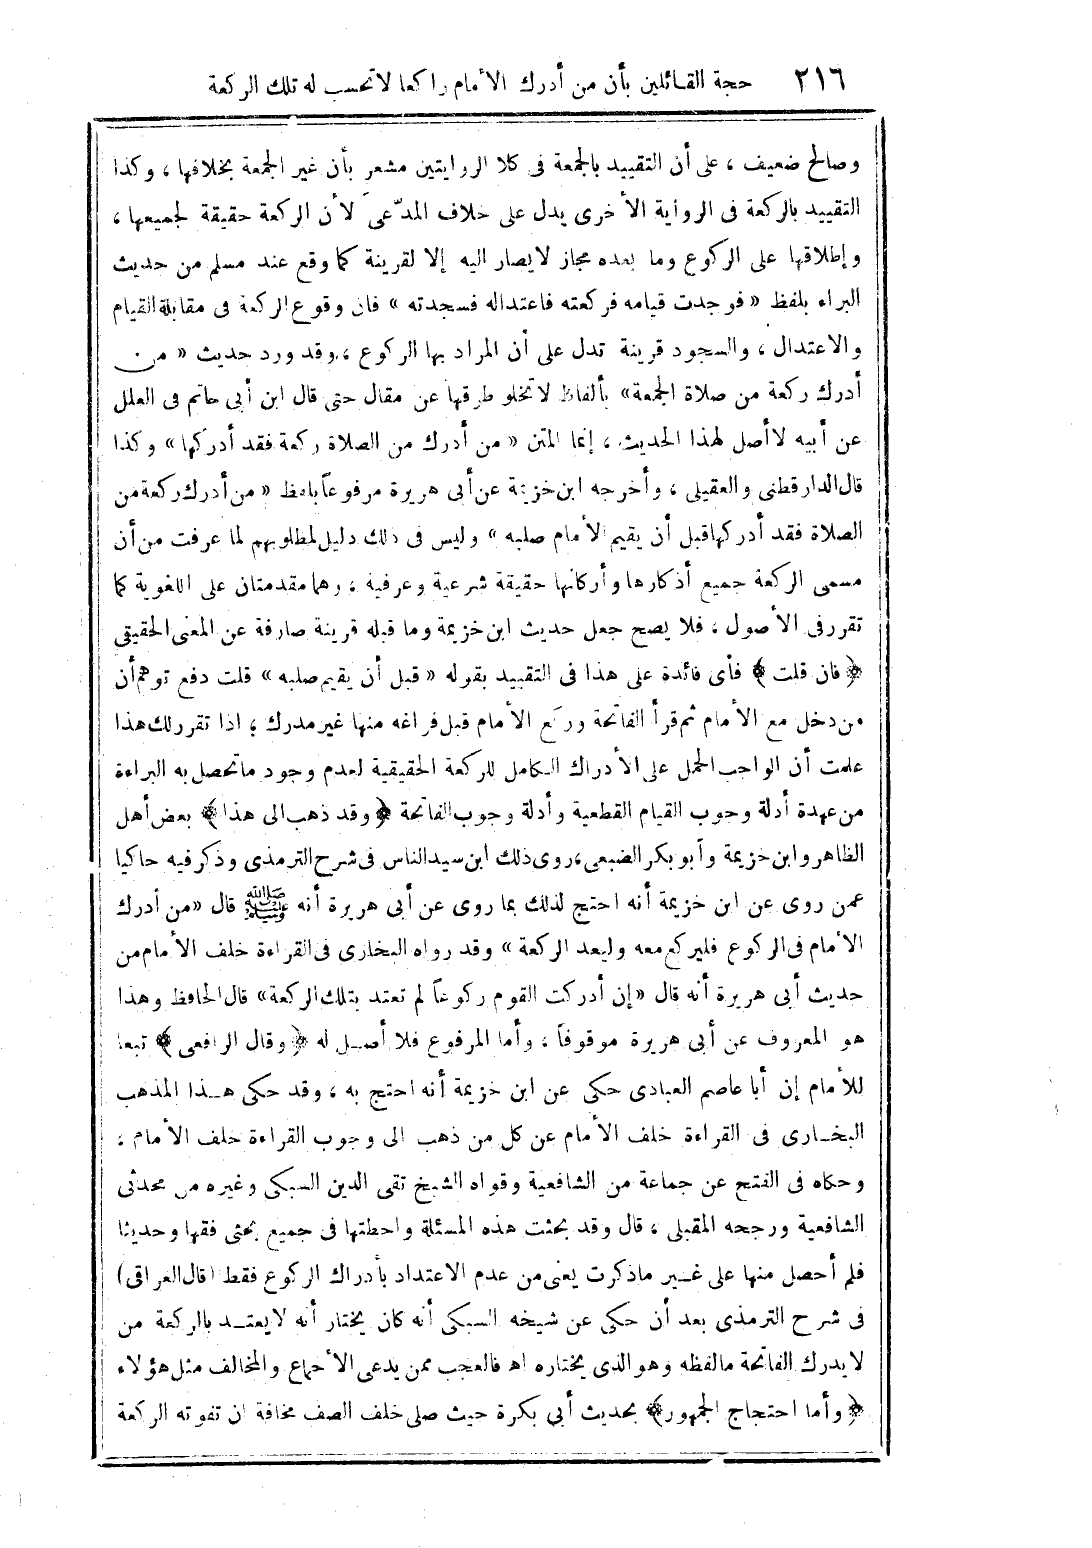 ٢١٦ حجة القائلين بأن من أدرك الأمام راكعا لاتحسب له تلك الركعة
وصالح ضعيف ، على أن التقييد بالجمعة فى كلا الروايتين مشعر بأن غير الجمعة بخلافها ، وكذا
التقييد بالركعة فى الرواية الأخرى يدل على خلاف المدّعى لأن الركعة حقيقة لجميعها ،
وإطلاقها على الركوع وما بعده مجاز لايصار اليه إلا لقرينة كما وقع عند مسلم من حديث
البراء بلفظ « فوجدت قيامه فركعته فاعتداله فسجدته » فان وقوع الركعة فى مقابلة القيام
والاعتدال ، والسجود قرينة تدل على أن المراد بها الركوع ، وقد ورد حديث « من
أدرك ركعة من صلاة الجمعة» بألفاظ لاتخلو طرقها عن مقال حتى قال ابن أبى حاتم فى العلل
عن أبيه لاأصل لهذا الحديث ، إنما المتن « من أدرك من الصلاة ركعة فقد أدركها » وكذا
قال الدارقطنى والعقيلى ، وأخرجه ابن خزيمة عن أبى هريرة مرفوعاً بلفظ « من أدرك ركعة من
الصلاة فقد أدركها قبل أن يقيم الأمام صلبه » وليس فى ذلك دليل لمطلوبهم لما عرفت من أن
مسمى الركعة جميع أذكارها وأركانها حقيقة شرعية وعرفية ، وهما مقدمتان على اللغوية كما
تقرر فى الأصول ، فلا يصح جعل حديث ابن خزيمة وما قبله قرينة صارفة عن المعنى الحقيقى
﴿ فان قلت ﴾ فأى فائدة على هذا فى التقييد بقوله « قبل أن يقيم صلبه » قلت دفع توهم أن
من دخل مع الأمام ثم قرأ الفاتحة وركع الأمام قبل فراغه منها غير مدرك ؛ اذا تقرر لك هذا
علمت أن الواجب الحمل على الأدراك الكامل للركعة الحقيقية لعدم وجود ماتحصل به البراءة
من عهدة أدلة وجوب القيام القطعية وأدلة وجوب الفاتحة ﴿ وقد ذهب الى هذا ﴾ بعض أهل
الظاهر وابن خزيمة وأبو بكر الضبعى ، روى ذلك ابن سيد الناس فى شرح الترمذى وذكر فيه حاكيا
عمن روى عن ابن خزيمة أنه احتج لذلك بما روى عن أبى هريرة أنه ﷺ قال « من أدرك
الأمام فى الركوع فليركع معه وليعد الركعة » وقد رواه البخارى فى القراءة خلف الأمام من
حديث أبى هريرة أنه قال «إن أدركت القوم ركوعاً لم تعتد بتلك الركعة» قال الحافظ وهذا
هو المعروف عن أبى هريرة موقوفاً ، وأما المرفوع فلا أصل له ﴿ وقال الرافعى ﴾ تبعا
للأمام إن أبا عاصم العبادى حكى عن ابن خزيمة أنه احتج به ، وقد حكى هذا المذهب
البخارى فى القراءة خلف الأمام عن كل من ذهب الى وجوب القراءة خلف الأمام ،
وحكاه فى الفتح عن جماعة من الشافعية وقواه الشيخ تقى الدين السبكى وغيره من محدثى
الشافعية ورجحه المقبلى ، قال وقد بحثت هذه المسئلة واحطتها فى جميع بحثى فقها وحديثا
فلم أحصل منها على غير ماذكرت يعنى من عدم الاعتداد بأدراك الركوع فقط (قال العراقى)
فى شرح الترمذى بعد أن حكى عن شيخه السبكى أنه كان يختار أنه لايعتد بالركعة من
لايدرك الفاتحة مالفظه وهو الذى يختاره اه فالعجب ممن يدعى الأجماع والمخالف مثل هؤلاء
﴿ وأما احتجاج الجمهور﴾ بحديث أبي بكرة حيث صلى خلف الصف مخافة ان تفوته الركعة